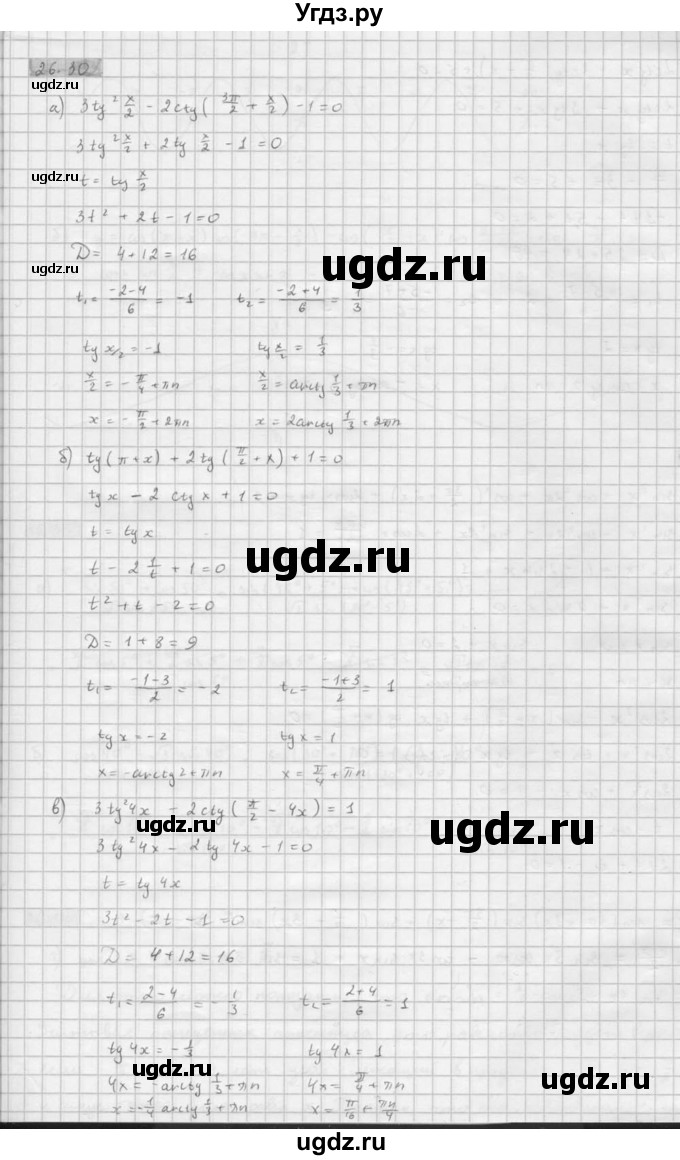 Угдз.ру
26.30
а) 3tg² x/2 - 2ctg(3π/2 + x/2) - 1 = 0
3tg² x/2 + 2tg x/2 - 1 = 0
ugdz.ru
t = tg x/2
3t² + 2t - 1 = 0
D = 4 + 12 = 16
ugdz.ru
ugdz.ru
t₁ = (-2-4)/6 = -1 t₂ = (-2+4)/6 = 1/3
tg x/2 = -1 tg x/2 = 1/3
ugdz.ru
x/2 = -π/4 + πn x/2 = arctg 1/3 + πn
x = -π/2 + 2πn x = 2arctg 1/3 + 2πn
б) tg(π + x) + 2tg(π/2 + x) + 1 = 0
tg x - 2 ctg x + 1 = 0
t = tg x
ugdz.ru
t - 2 1/t + 1 = 0
ugdz.ru
t² + t - 2 = 0
D = 1 + 8 = 9
t₁ = (-1-3)/2 = -2 t₂ = (-1+3)/2 = 1
tg x = -2 tg x = 1
ugdz.ru
x = -arctg 2 + πn x = π/4 + πn
в) 3tg² 4x - 2ctg(π/2 - 4x) = 1
ugdz.ru
ugdz.ru
3tg² 4x - 2tg 4x - 1 = 0
t = tg 4x
3t² - 2t - 1 = 0
D = 4 + 12 = 16
t₁ = (2-4)/6 = -1/3 t₂ = (2+4)/6 = 1
tg 4x = -1/3 tg 4x = 1
ugdz.ru
ugdz.ru
4x = -arctg 1/3 + πn 4x = π/4 + πn
x = -1/4 arctg 1/3 + πn x = π/16 + πn/4
ugdz.ru